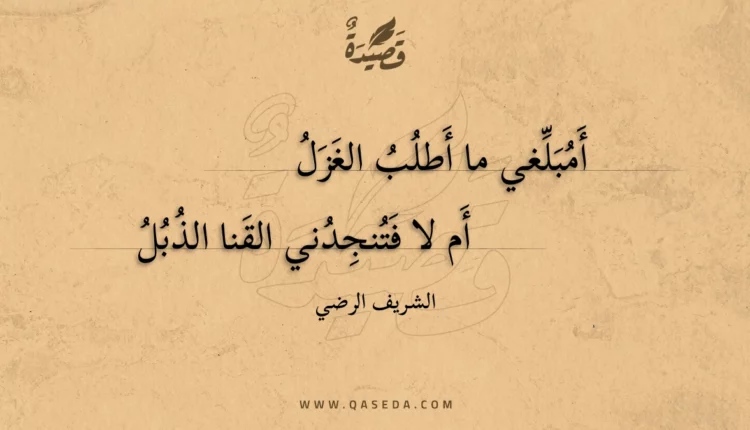 قَصِيدَةٌ
أَمُبَلِّغي ما أَطلُبُ الغَزَلُ
أَم لا فَتُنجِدُني القَنا الذُبُلُ
الشريف الرضي
WWW.QASEDA.COM